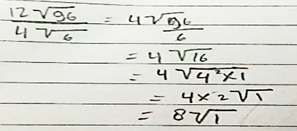 12√96 / 4√6 = 4√96/6
= 4√16
= 4√4²×1
= 4×2√1
= 8√1